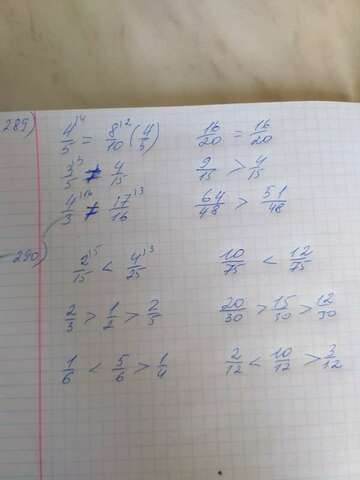 289) 4/5 = 8/10 (4/5) 16/20 = 16/20
3/5 ≠ 4/15 9/15 > 4/15
4/3 ≠ 17/16 64/48 > 51/48
290)
2/15 < 4/25 10/75 < 12/75
2/3 > 1/2 > 2/5 20/30 > 15/30 > 12/30
1/6 < 5/6 > 1/4 2/12 < 10/12 > 3/12